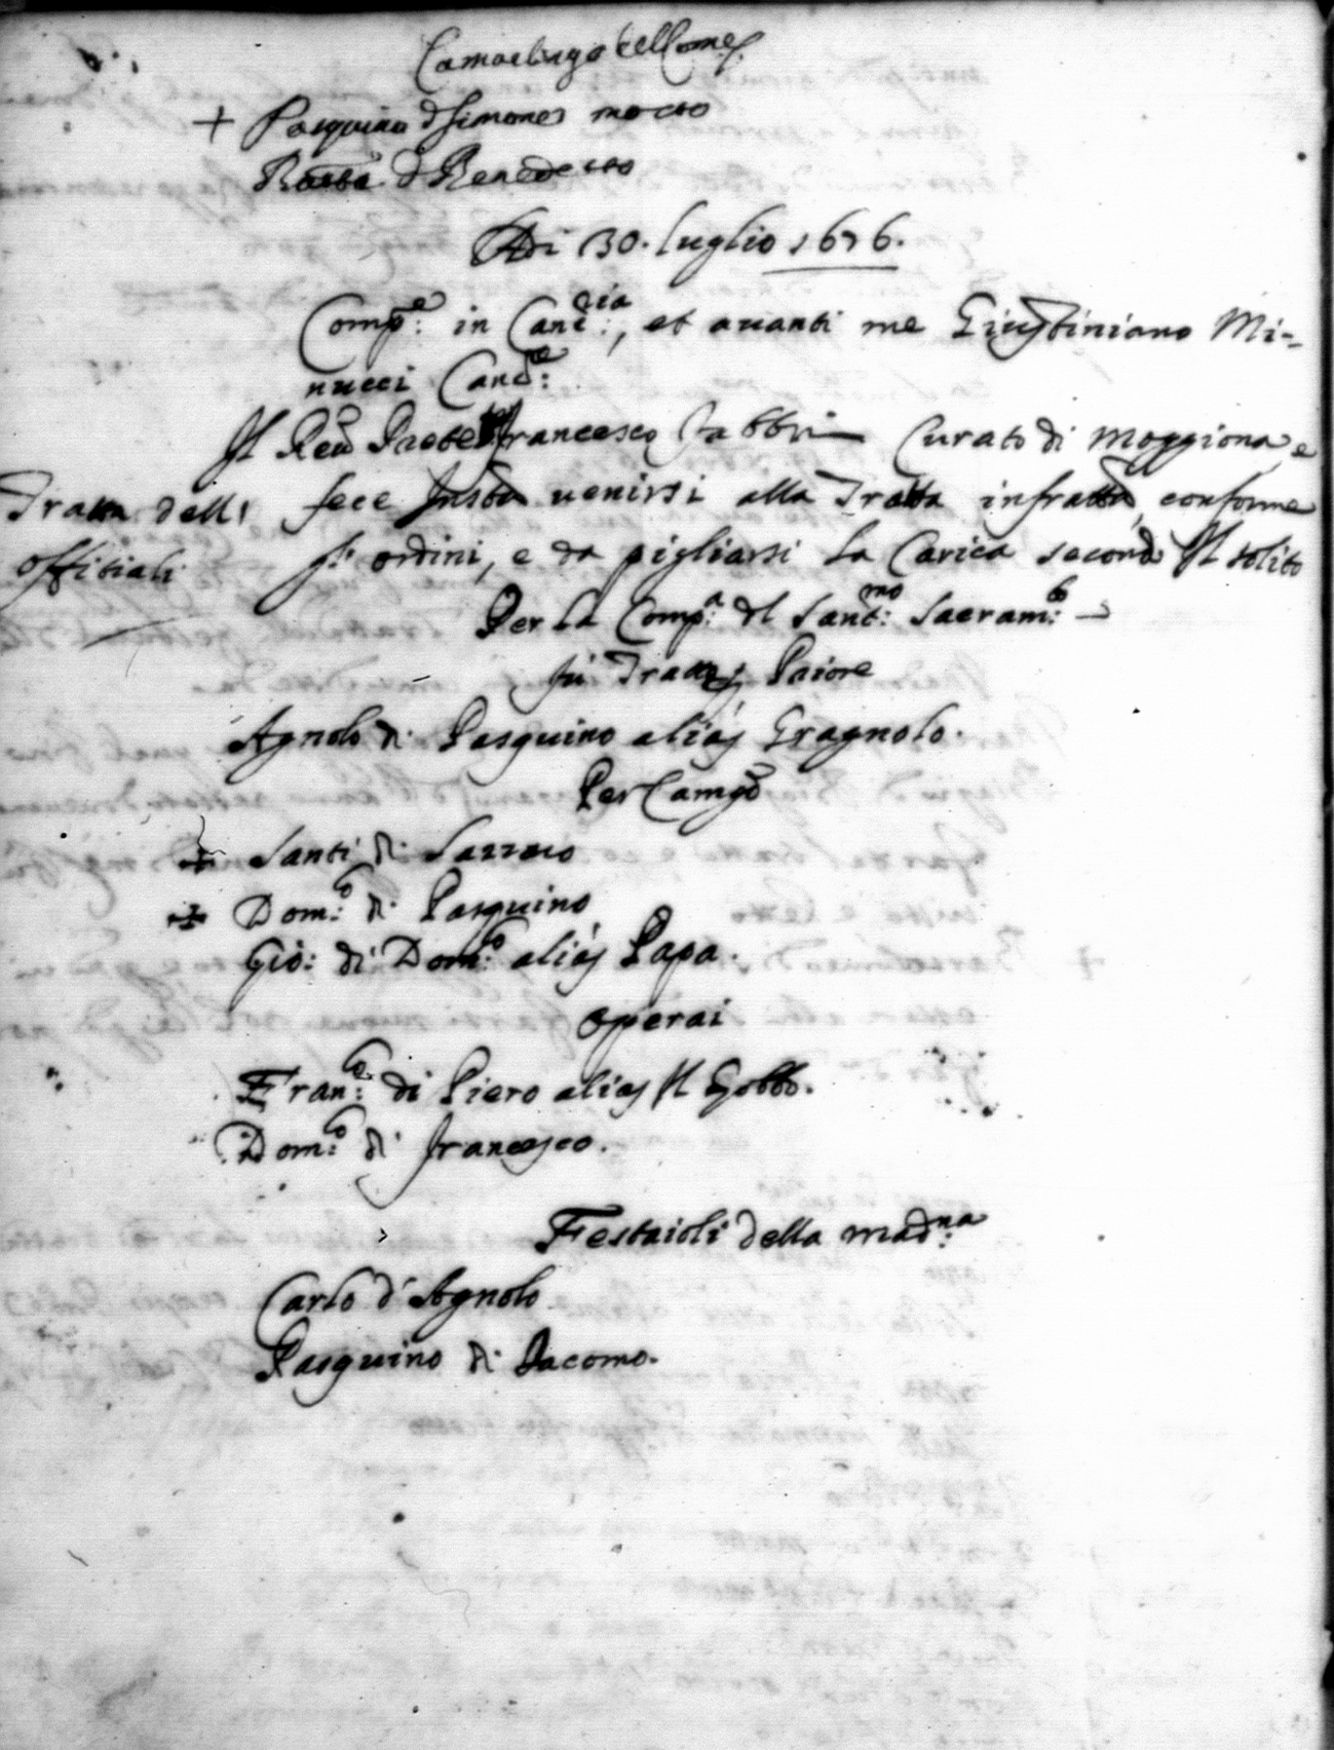 Camarlingo del Comē.
+ Pasquino d Simone morto
d Benedetto
Adi 30. luglio 1676.
Comp.e in Canc.ria, et avanti me Giustiniano Mi-
nucci Canc.e
Il Reu Prete Francesco Fabbri Curato di Moggiona e
Tratta delli
offitiali
fece Insta venirsi alla Tratta infratta, conforme
ordini, e da pigliarsi la Carica second Il solito
Per la Comp.a dl Sant.mo Sacram.to
fu Tratt Priore
Agnolo di Pasquino alias Gragnolo.
Per Camgo
+ Santi di Lazzaro
+ Dom.co di Pasquino
Gio: di Dom.co alias Papa.
operai
Fran.co di Piero alias Il Gobbo.
Dom.co di francesco.
Festaioli della mad.na
Carlo d'Agnolo
Pasquino di Iacomo.